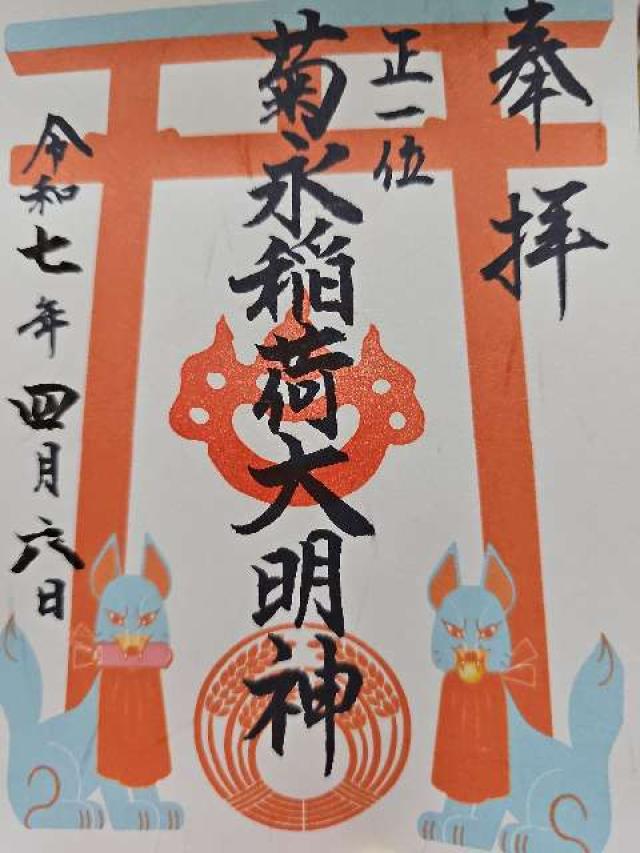 奉拝
正一位
菊永稲荷大明神
令和七年四月六日